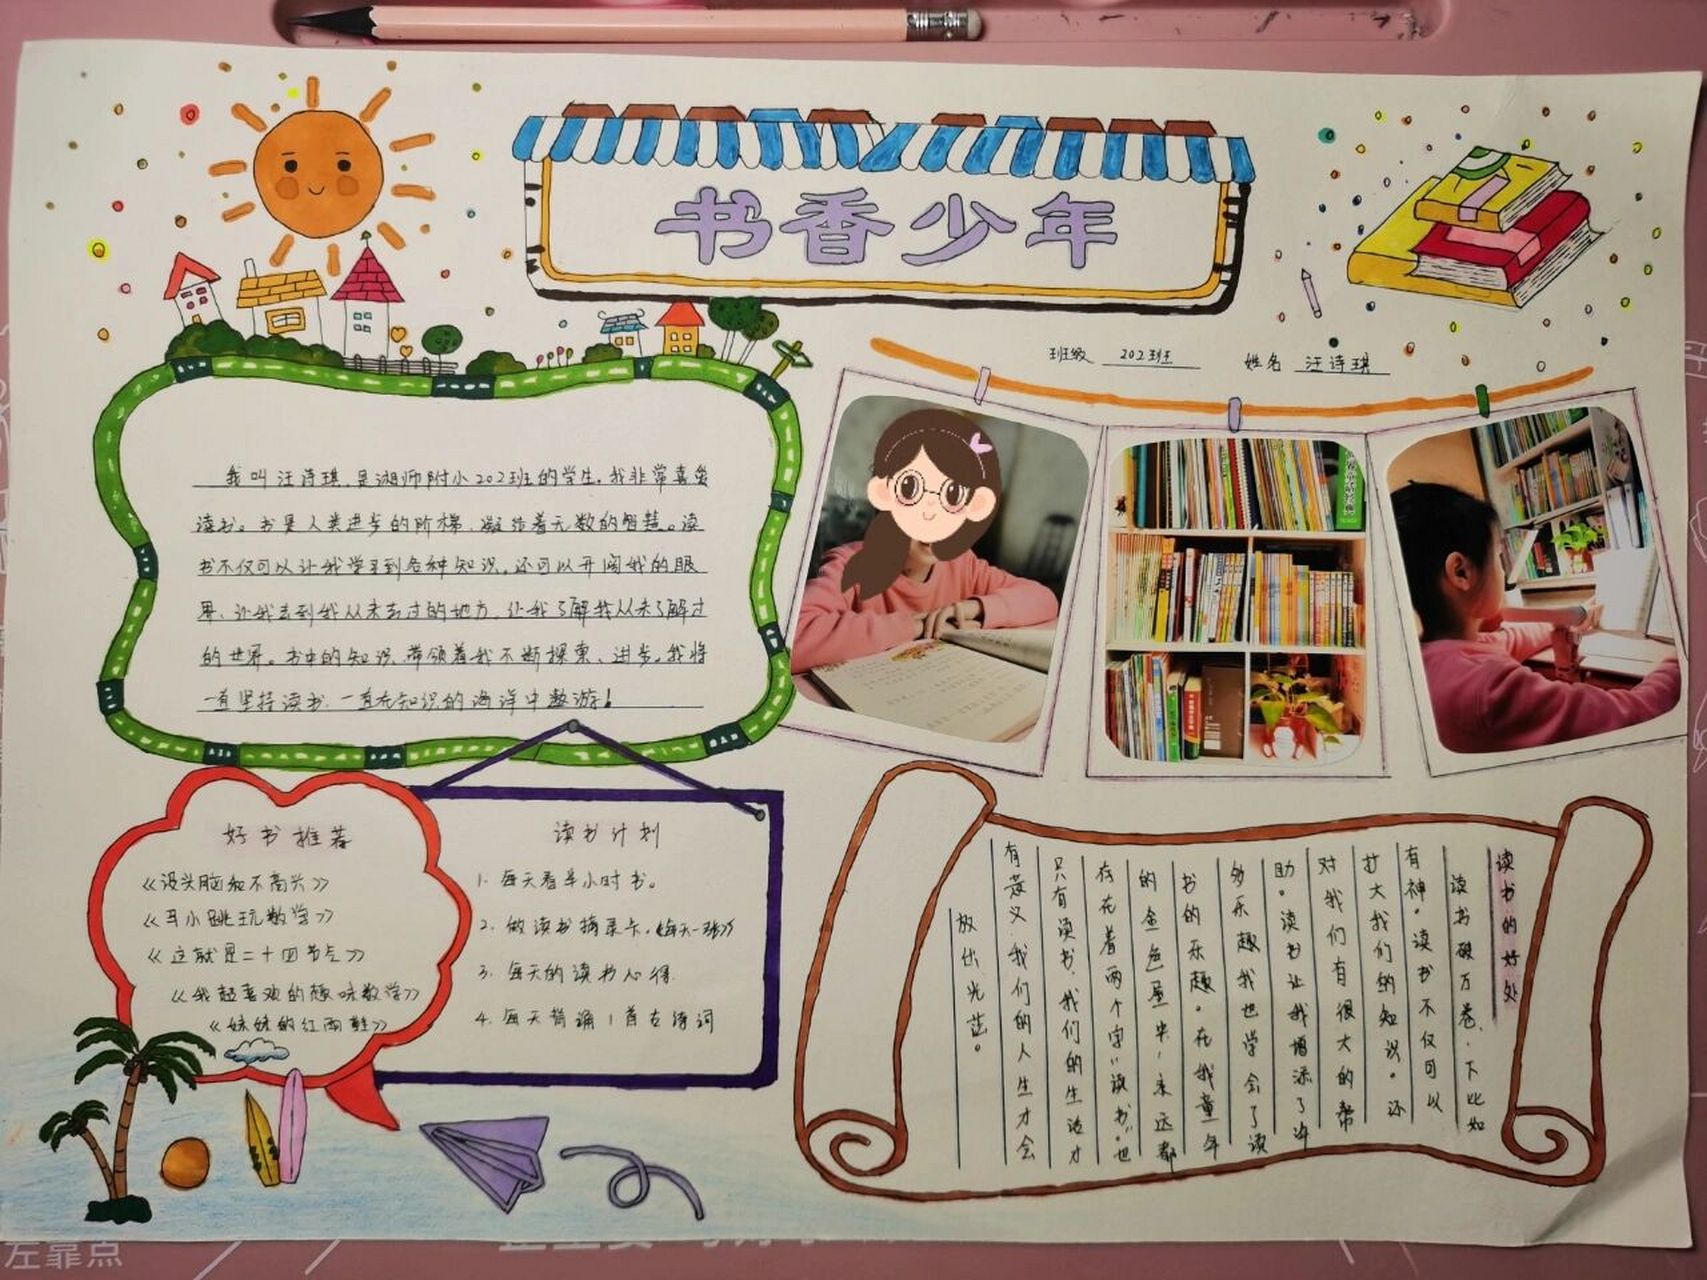 书香少年
班级 202班 姓名 汪诗琪
我叫汪诗琪,是湖师附小202班的学生。我非常喜爱
读书。书是人类进步的阶梯,凝结着无数的智慧。读
书不仅可以让我学习到各种知识。还可以开阔我的眼
界,让我去到我从未去过的地方,让我了解我从未了解过
的世界。书中的知识,带领着我不断探索、进步。我将
一直坚持读书,一直在知识的海洋中遨游!
好书推荐
《没头脑和不高兴》
《马小跳玩数学》
《这就是二十四节气》
《我超喜欢的趣味数学》
《妹妹的红雨鞋》
读书计划
1. 每天看半小时书。
2. 做读书摘录卡。(每天一张)
3. 每天的读书心得.
4. 每天背诵1首古诗词
读书的好处
读书破万卷,下笔如
有神。读书不仅可以
扩大我们的知识。还
对我们有很大的帮
助。读书让我增添了许
多乐趣我也学会了读
书的乐趣。在我童年
的金色屋里,永远都
存在着两个字:"读书"。也
只有读书,我们的生活才
有意义,我们的人生才会
放出光茫。
左靠点